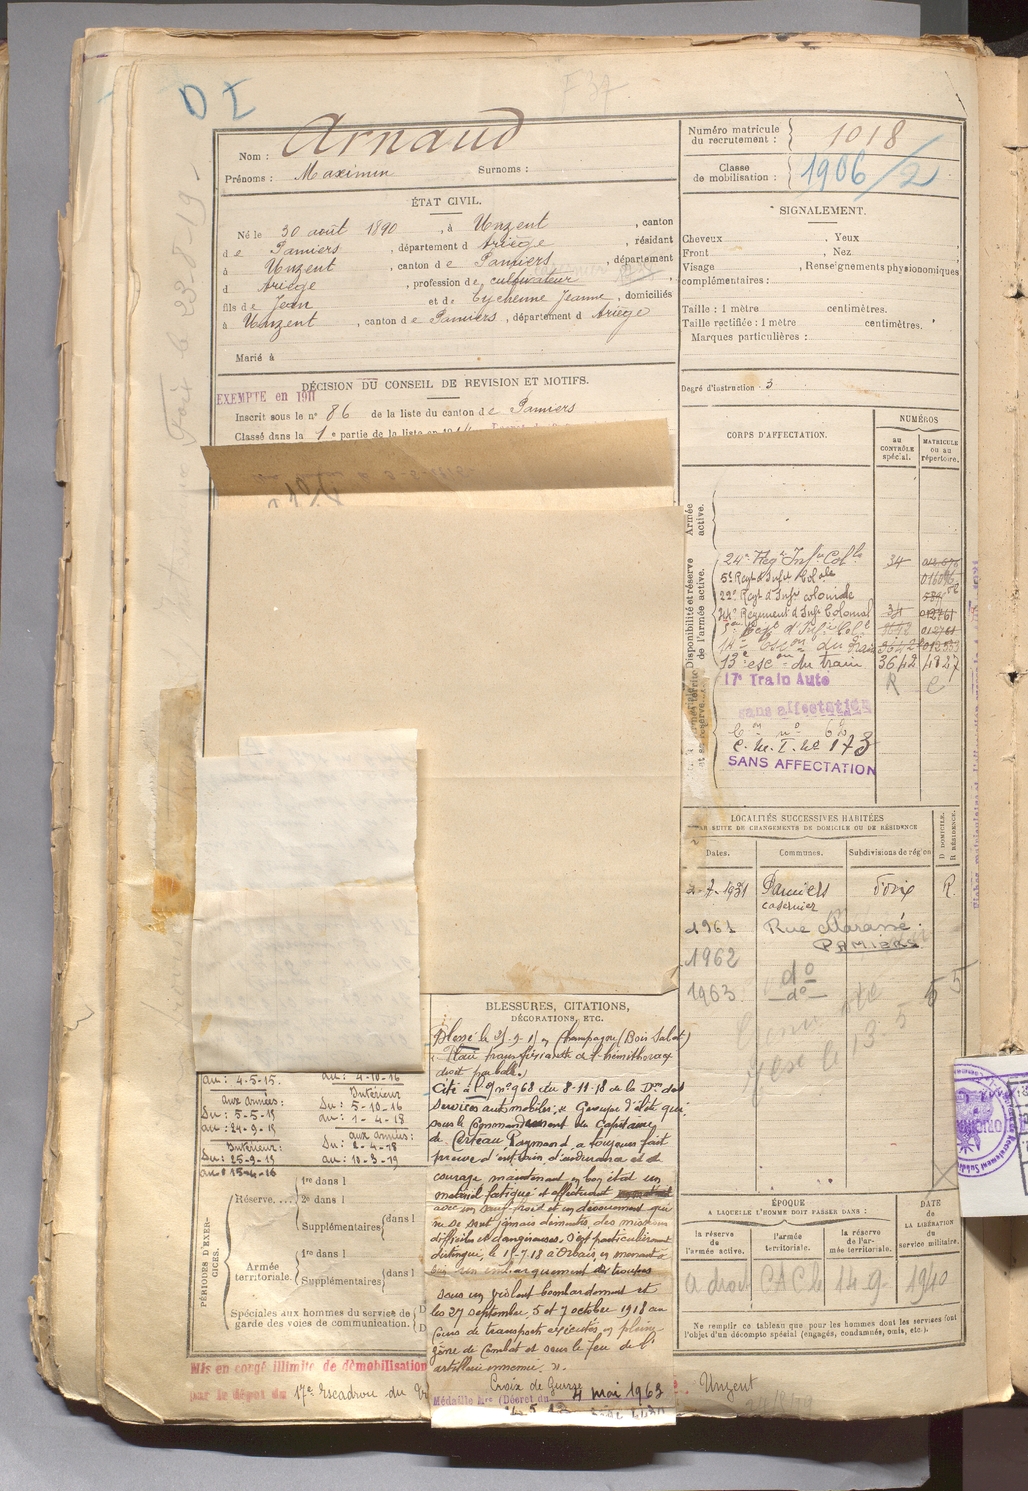 D I
Arnaud
Nom :
Prénoms : Maximin Surnoms :
ÉTAT CIVIL.
Né le 30 août 1890, à Unzent, canton
de Pamiers, département d Ariège, résidant
à Unzent, canton de Pamiers, département
d Ariège, profession de cultivateur
fils de Jean et de Eychenne Jeanne, domiciliés
à Unzent, canton de Pamiers, département d Ariège
Marié à
DÉCISION DU CONSEIL DE REVISION ET MOTIFS.
EXEMPTÉ en 1911
Inscrit sous le n° 86 de la liste du canton de Pamiers
Classé dans la 1e partie de la liste en
Numéro matricule du recrutement : 1018
Classe de mobilisation : 1906/2
SIGNALEMENT.
Cheveux , Yeux
Front , Nez
Visage , Renseignements physionomiques
complémentaires :
Taille : 1 mètre centimètres.
Taille rectifiée : 1 mètre centimètres.
Marques particulières :
Degré d'instruction : 3
CORPS D'AFFECTATION.
NUMÉROS
au CONTRÔLE spécial.
MATRICULE ou au répertoire.
Armée active.
Disponibilité et réserve de l'armée active.
24e Regt Infie Colle 34
5e Regt d'Infie Colale 016096
22e Regt d'Infie coloniale
44e Régiment d'Infie Colonial 34 012761
5e Regt d'Infie Colle 3642 012761
14e escon du train 3642
13e escon du train 3642 4827
17e Train Auto R C
sans affectation
C. M. I. No 173
SANS AFFECTATION
LOCALITÉS SUCCESSIVES HABITÉES
PAR SUITE DE CHANGEMENTS DE DOMICILE OU DE RÉSIDENCE
Dates. Communes. Subdivisions de région D DOMICILE. R RÉSIDENCE.
2-7-1931 Pamiers Foix R.
casernier
1961 Rue Marassé
PAMIERS
1962 do
1963 do
BLESSURES, CITATIONS,
DÉCORATIONS, ETC.
Blessé le 25-9-15 en Champagne (Bois Sabot)
Plaie transfixiante de l'hémithorax
droit par balle.
Cité à l'O n° 968 du 8-11-18 de la Don des
Services automobiles, « Groupe d'élite qui
sous le Commandement du Capitaine
de Certeau Raymond a toujours fait
preuve d'entrain d'endurance et de
courage maintenant en bon état un
matériel fatigué et effectuant
avec un sang-froid et un dévouement qui
ne se sont jamais démentis, des missions
difficiles et dangereuses. S'est particulièrement
distingué, le 15-7-18 à Orbais, en menant à
bien un embarquement de troupes
sous un violent bombardement et
les 27 septembre, 5 et 7 octobre 1918 au
cours de transports exécutés en pleine
zone de combat et sous le feu de l'
artillerie ennemie. ».
Croix de Guerre
Médaille Mre (Décret du 4 mai 1963
au : 4-5-15.
aux armées :
Du : 5-5-15
au : 24-9-15
Intérieur :
Du : 25-9-15
au 15-4-16
au : 4-10-16
Intérieur
Du : 5-10-16
au : 1-4-18
aux armées :
Du : 2-4-18
au : 10-3-19
PÉRIODES D'EXERCICES.
Réserve.... 1re dans l
2e dans l
Supplémentaires dans l
Armée territoriale. 1re dans l
Supplémentaires dans l
Spéciales aux hommes du service de
garde des voies de communication.
ÉPOQUE
A LAQUELLE L'HOMME DOIT PASSER DANS :
la réserve de l'armée active.
l'armée territoriale.
la réserve de l'armée territoriale.
DATE de LA LIBÉRATION du service militaire.
a droit CAC le 14-9- 1940
Ne remplir ce tableau que pour les hommes dont les services font
l'objet d'un décompte spécial (engagés, condamnés, omis, etc.).
Mis en congé illimité de démobilisation
par le dépôt du 17e Escadron du
Unzent